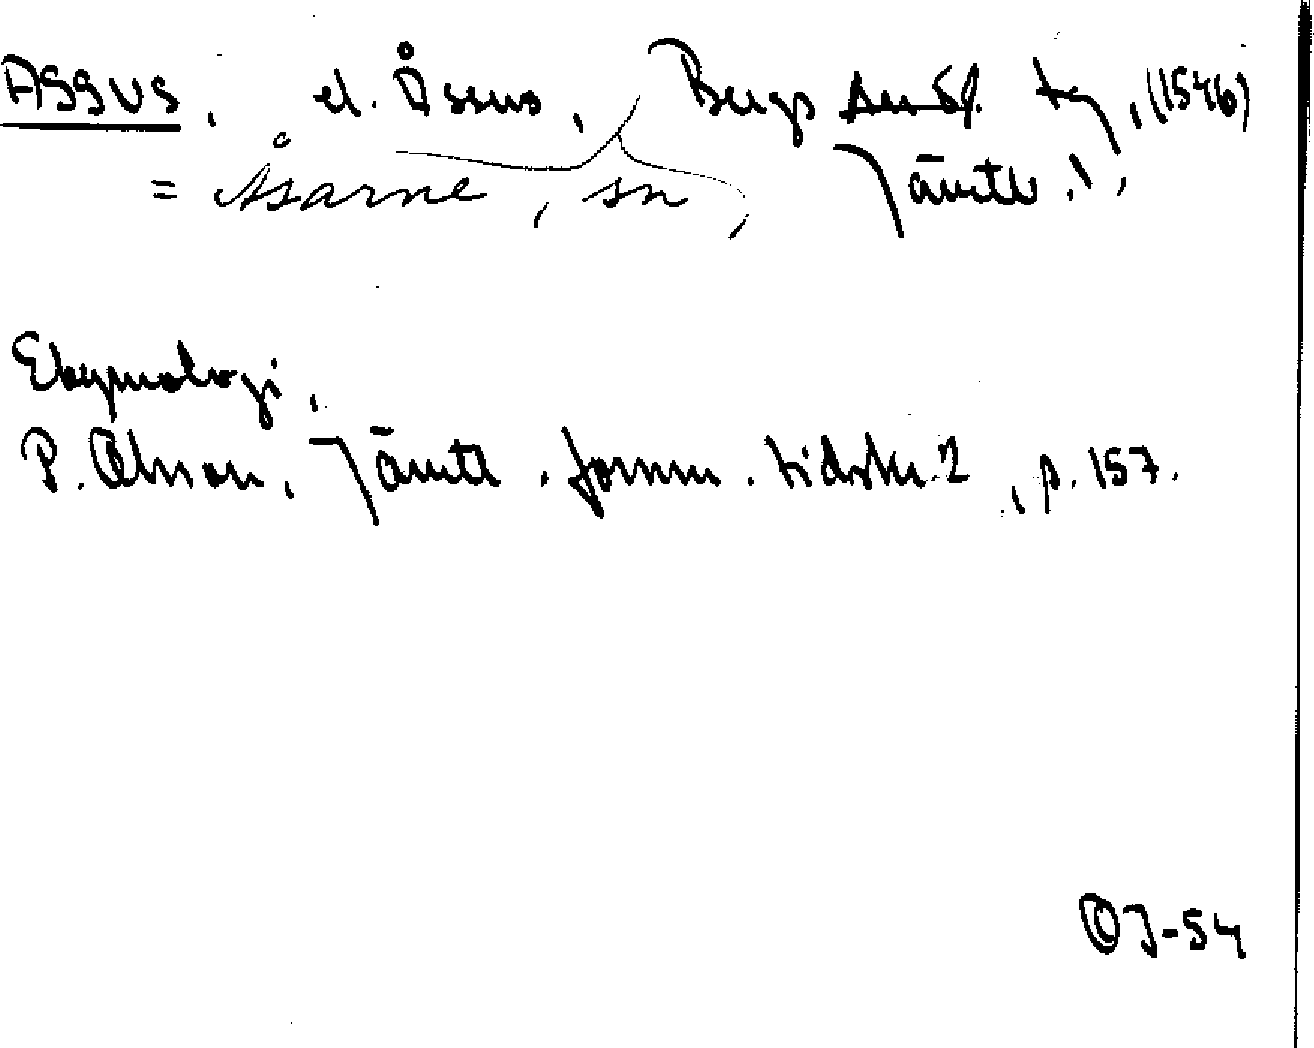 ASSUS, el. Åssus, Bergs tg, (1546)
= Åsarne, sn, Jämtl.,
Etymologi,
P. Olsson, Jämtl. fornm. tidskr. 2, p. 157.
OJ-54